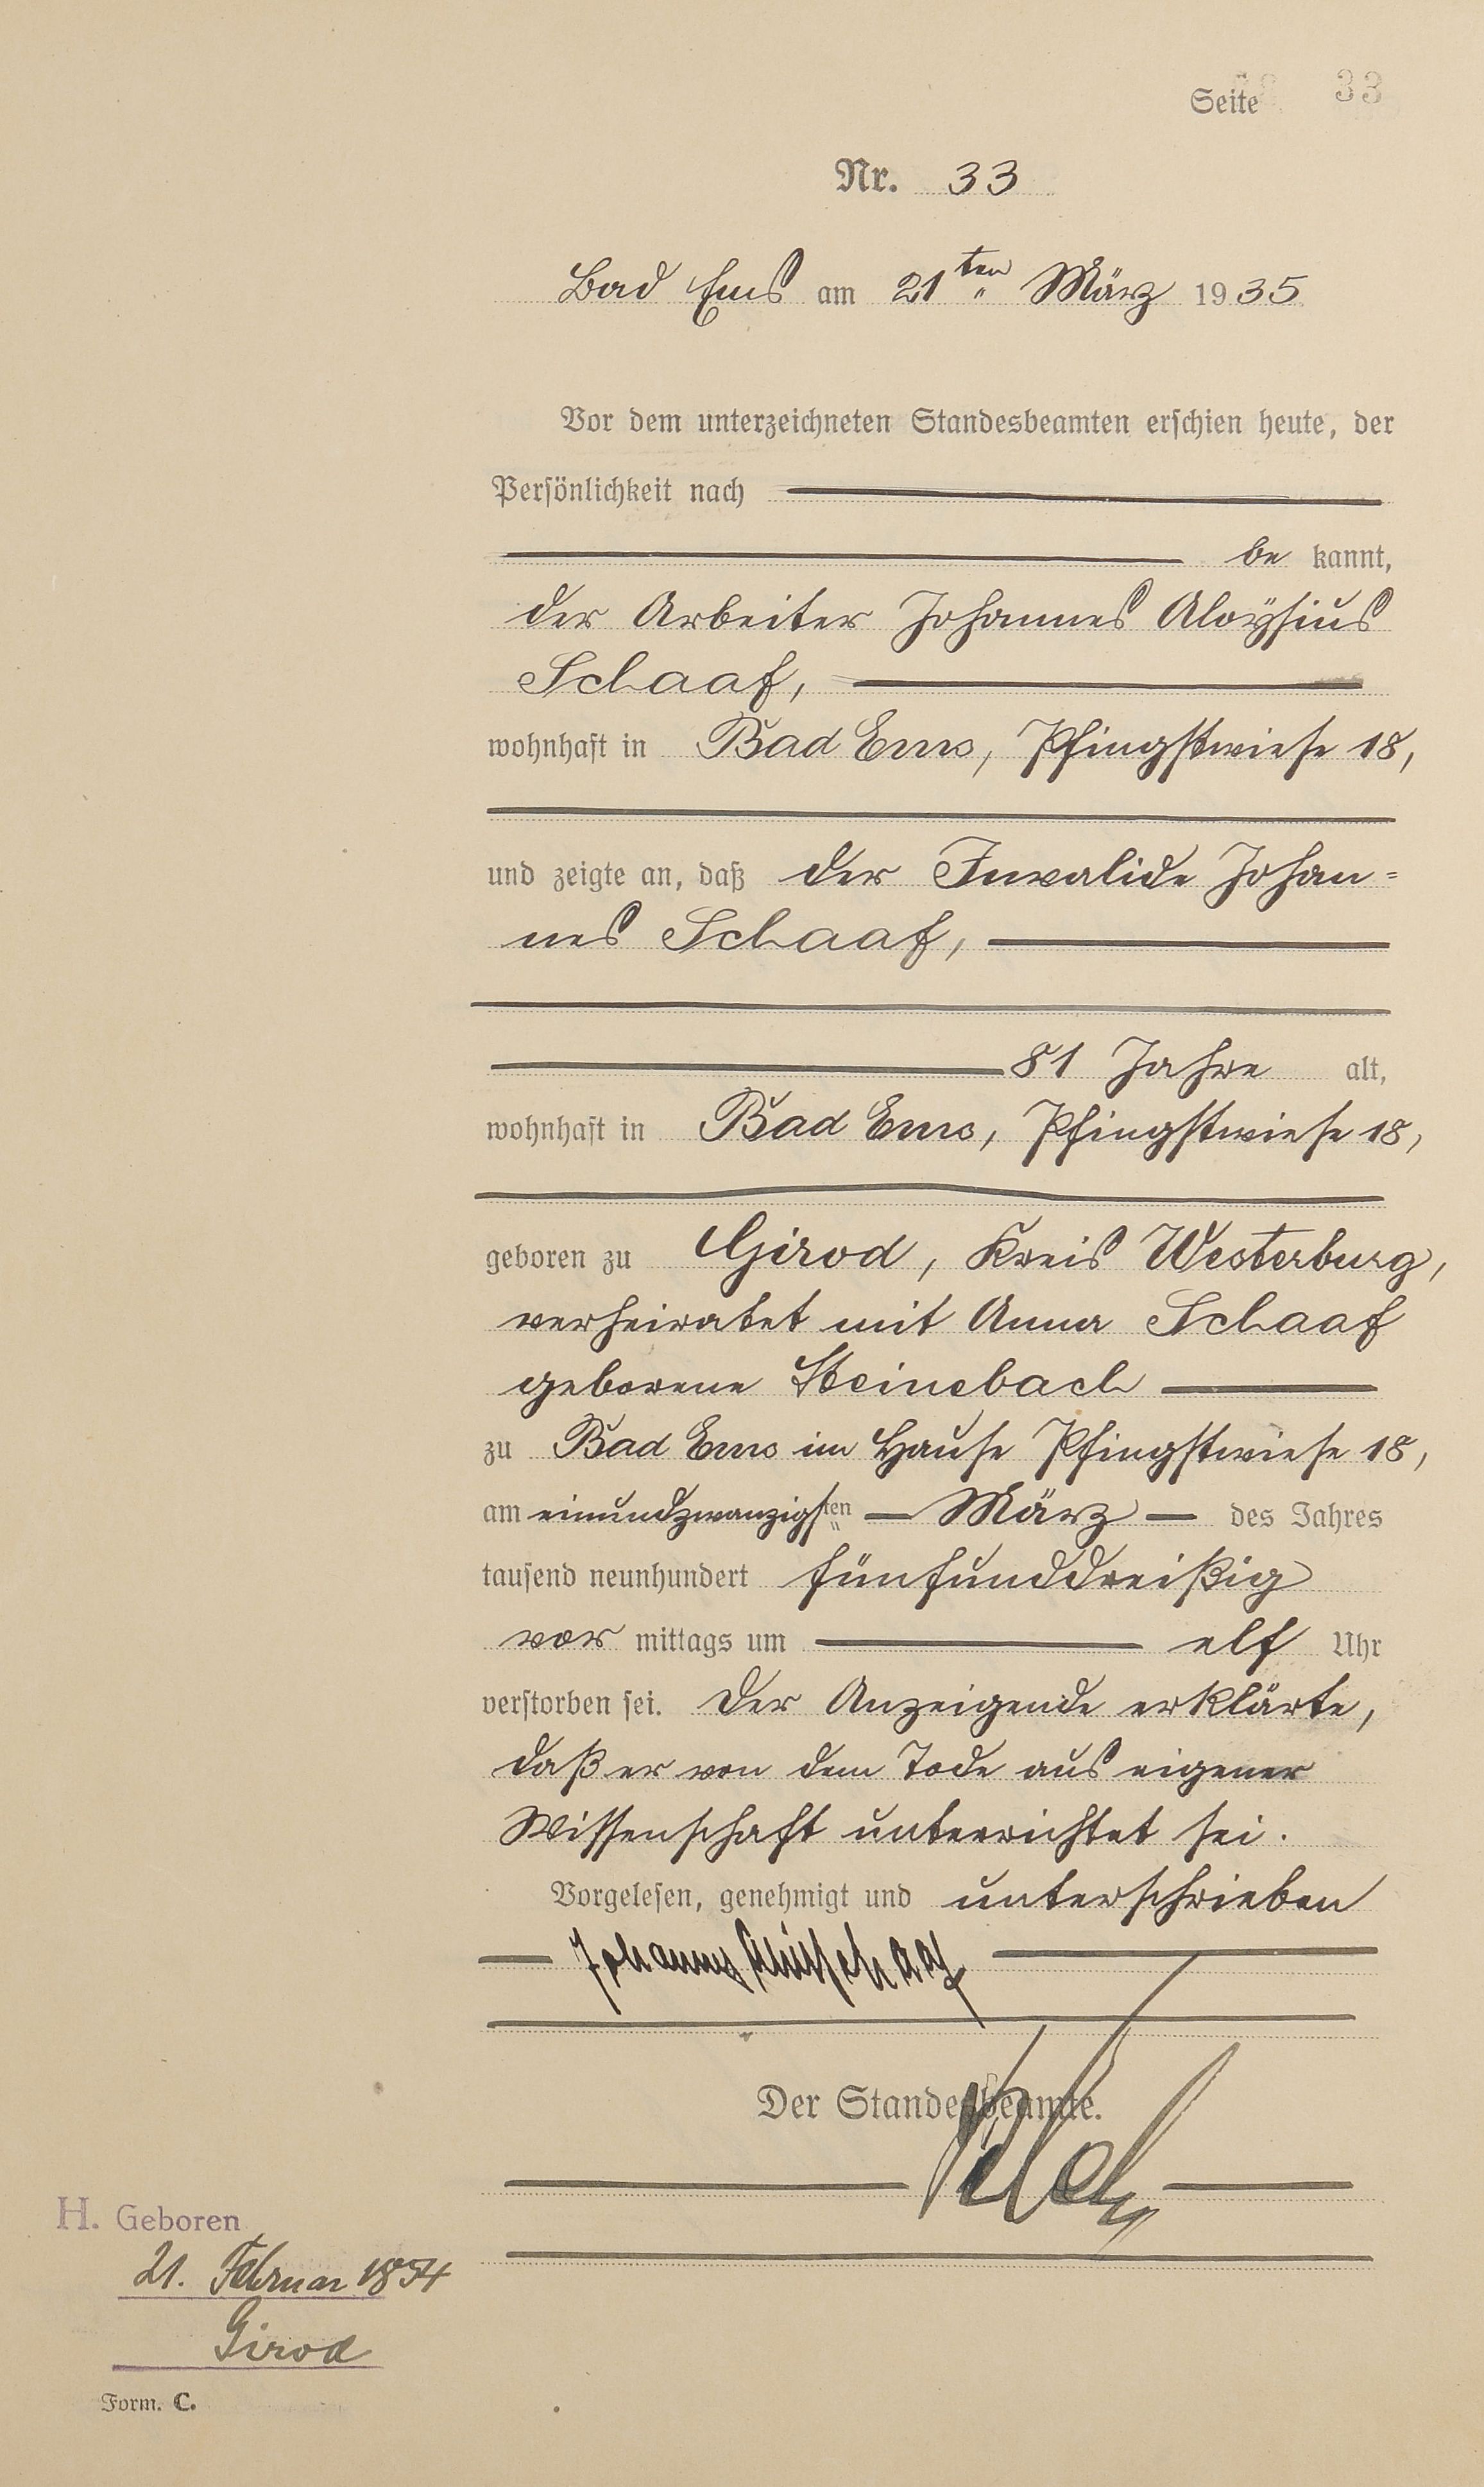 Seite 33
Nr. 33
Bad Ems am 21ten März 1935.
Vor dem unterzeichneten Standesbeamten erschien heute, der
Persönlichkeit nach
be kannt,
der Arbeiter Johannes Aloÿsius
Schaaf,
wohnhaft in Bad Ems, Pfingstwiese 18,
und zeigte an, daß der Invalide Johan=
nes Schaaf,
81 Jahre alt,
wohnhaft in Bad Ems, Pfingstwiese 18,
geboren zu Girod, Kreis Westerburg,
verheiratet mit Anna Schaaf
geborene Steinebach
zu Bad Ems im Hause Pfingstwiese 18,
am einundzwanzigsten März des Jahres
tausend neunhundert fünfunddreißig
vor mittags um elf Uhr
verstorben sei. Der Anzeigende erklärte,
daß er von dem Tode aus eigener
Wissenschaft unterrichtet sei.
Vorgelesen, genehmigt und unterschrieben
Johannes Schaaf
Der Standesbeamte.
H. Geboren
21. Februar 1854
Girod
Form. C.